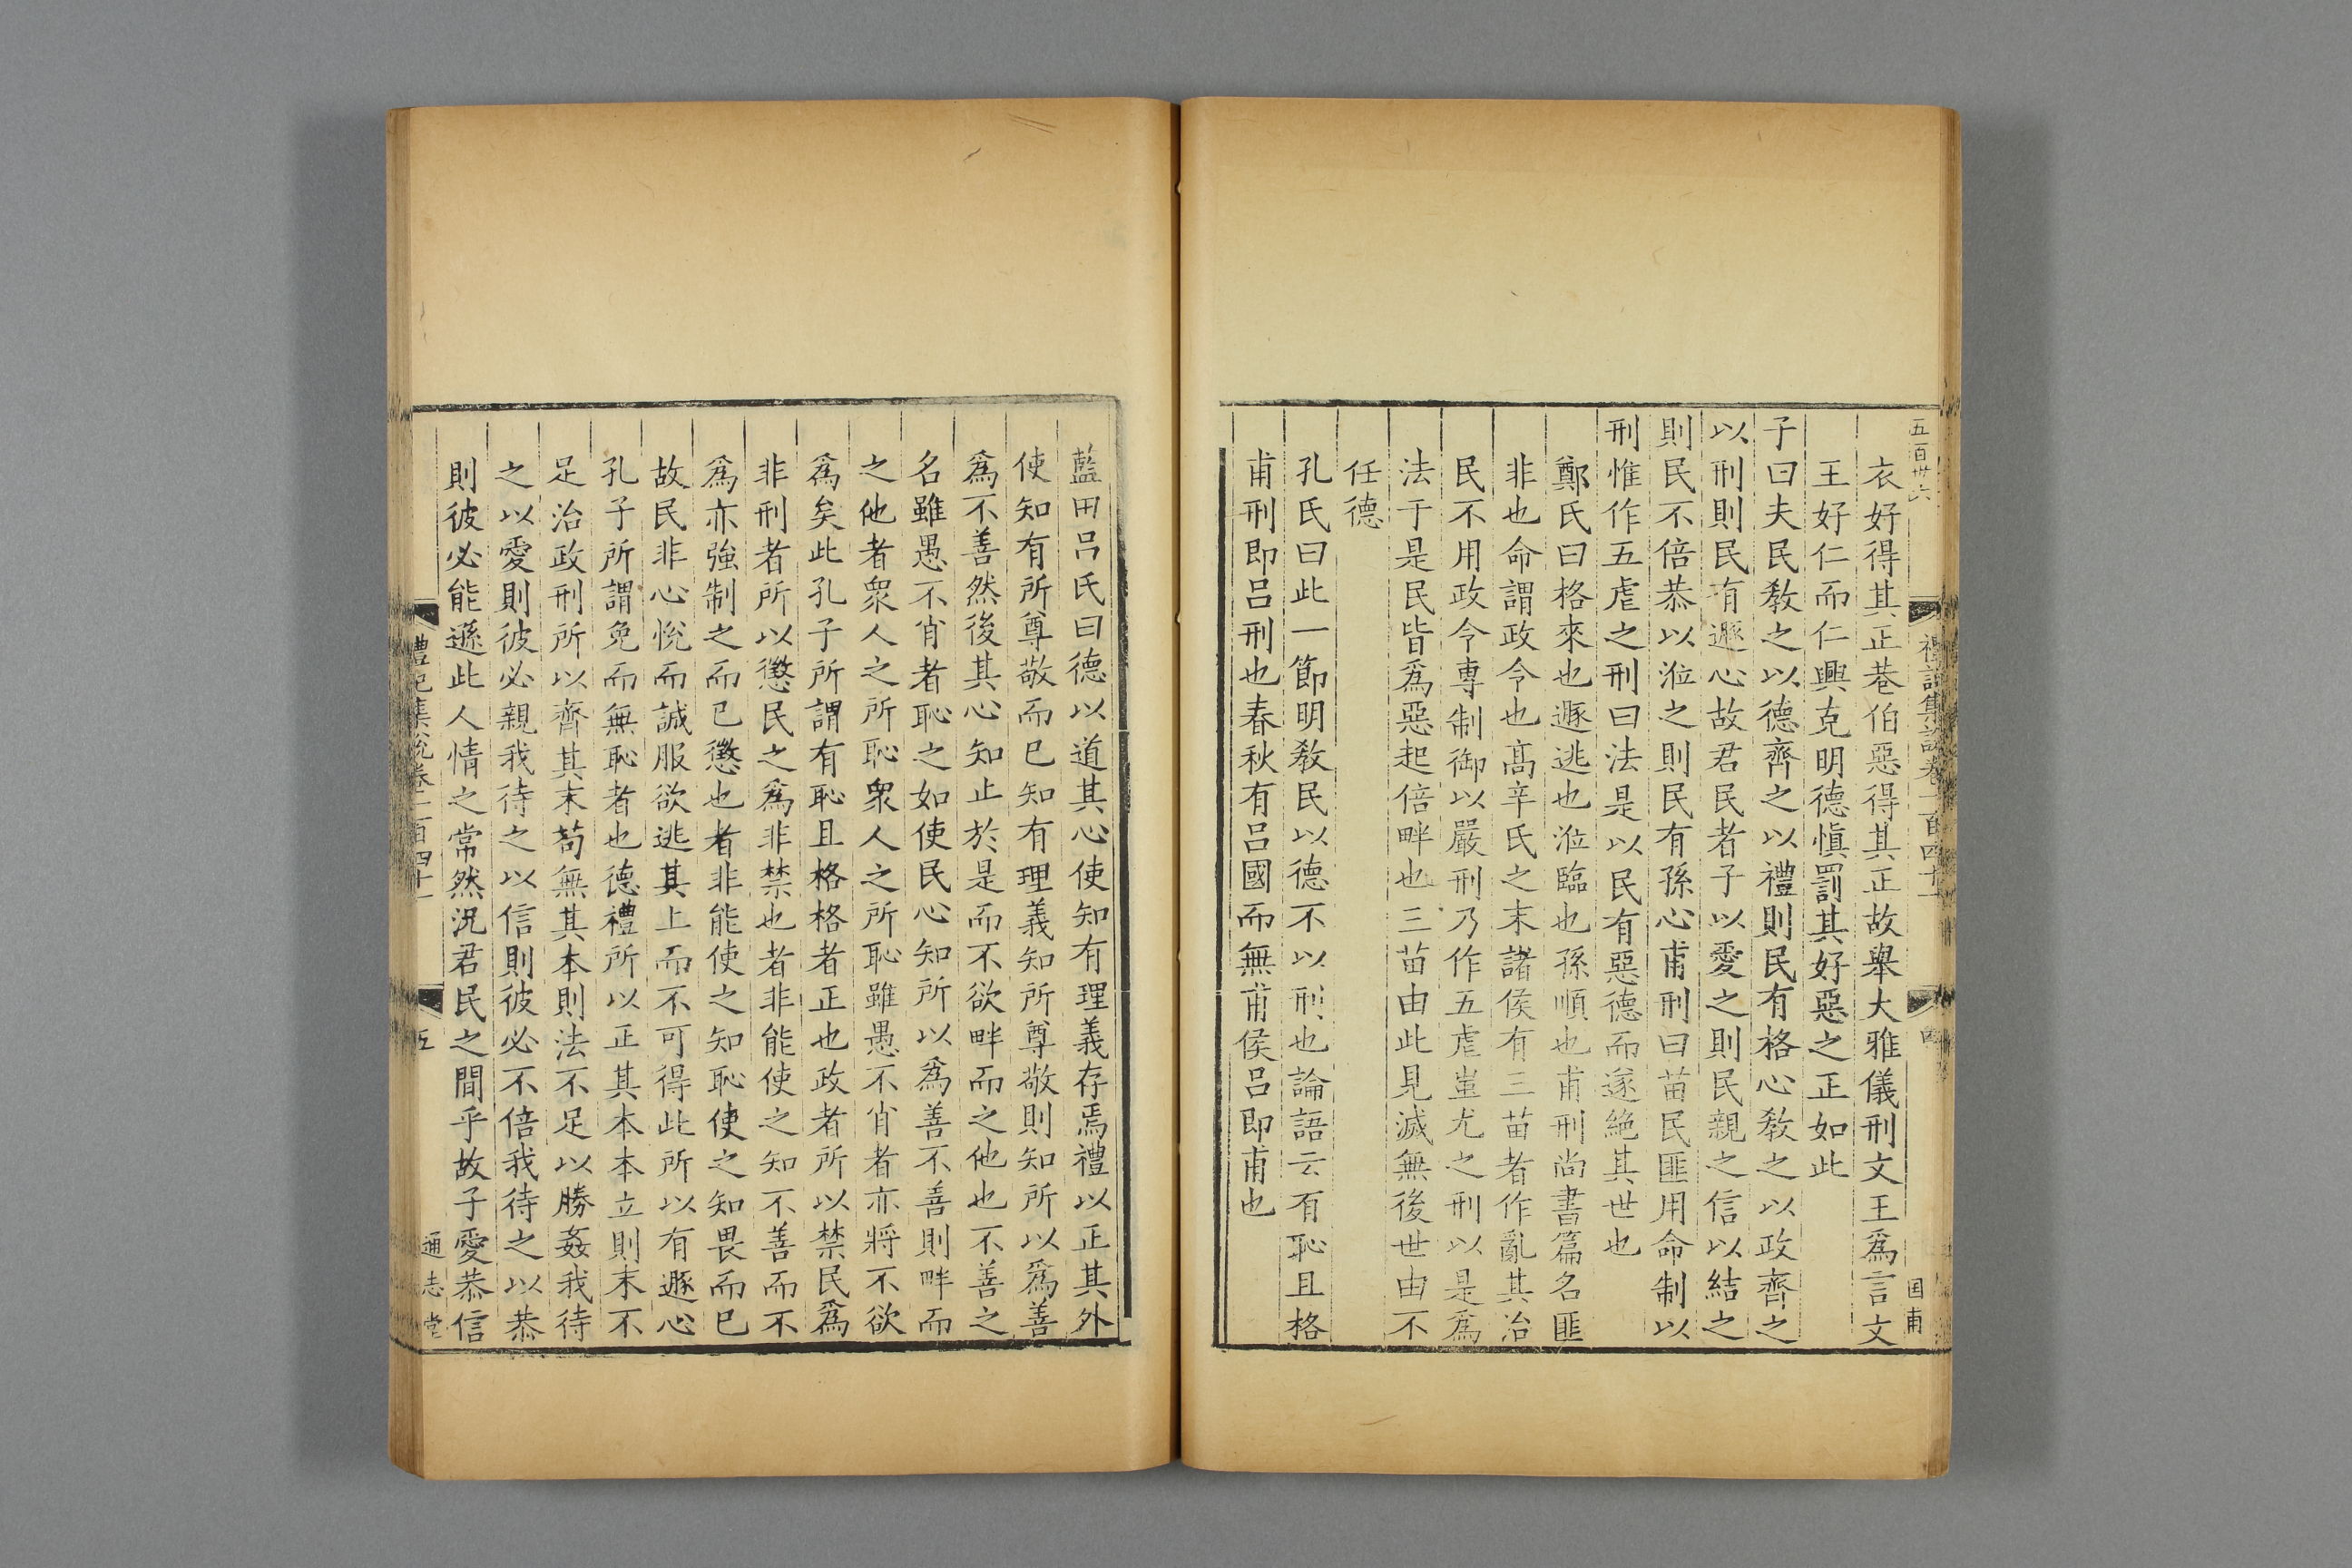 五百卅六
禮記集說卷一百四十一
四
国甫
衣好得其正巷伯惡得其正故舉大雅儀刑文王爲言文
王好仁而仁興克明德愼罰其好惡之正如此
子曰夫民敎之以德齊之以禮則民有格心敎之以政齊之
以刑則民有遯心故君民者子以愛之則民親之信以結之
則民不倍恭以涖之則民有孫心甫刑曰苗民匪用命制以
刑惟作五虐之刑曰法是以民有惡德而遂絶其世也
鄭氏曰格來也遯逃也涖臨也孫順也甫刑尚書篇名匪
非也命謂政令也髙辛氏之末諸侯有三苗者作亂其治
民不用政令専制御以嚴刑乃作五虐蚩尤之刑以是爲
法于是民皆爲惡起倍畔也三苗由此見滅無後世由不
任德
孔氏曰此一節明敎民以德不以刑也論語云有恥且格
甫刑即呂刑也春秋有呂國而無甫侯呂即甫也
藍田呂氏曰德以道其心使知有理義存焉禮以正其外
使知有所尊敬而已知有理義知所尊敬則知所以爲善
爲不善然後其心知止於是而不欲畔而之他也不善之
名雖愚不肖者恥之如使民心知所以爲善不善則畔而
之他者衆人之所恥衆人之所恥雖愚不肖者亦將不欲
爲矣此孔子所謂有恥且格格者正也政者所以禁民爲
非刑者所以懲民之爲非禁也者非能使之知不善而不
爲亦強制之而已懲也者非能使之知恥使之知畏而已
故民非心悅而誠服欲逃其上而不可得此所以有遯心
孔子所謂免而無恥者也德禮所以正其本本立則末不
足治政刑所以齊其末苟無其本則法不足以勝姦我待
之以愛則彼必親我待之以信則彼必不倍我待之以恭
則彼必能遜此人情之常然況君民之間乎故子愛恭信
禮記集說卷一百四十一
五
通志堂